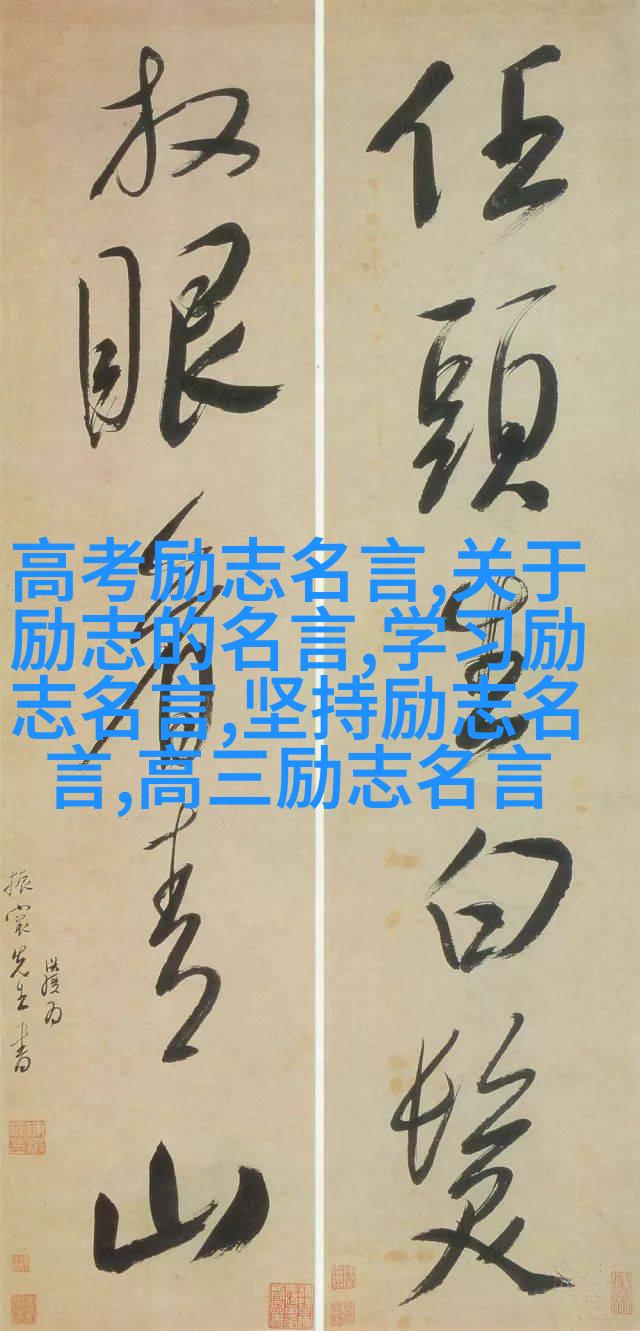 任頭生白髮
放眼看青山
振裳先生書
高考励志名言,关于
励志的名言,学习励
志名言,坚持励志名
言,高三励志名言